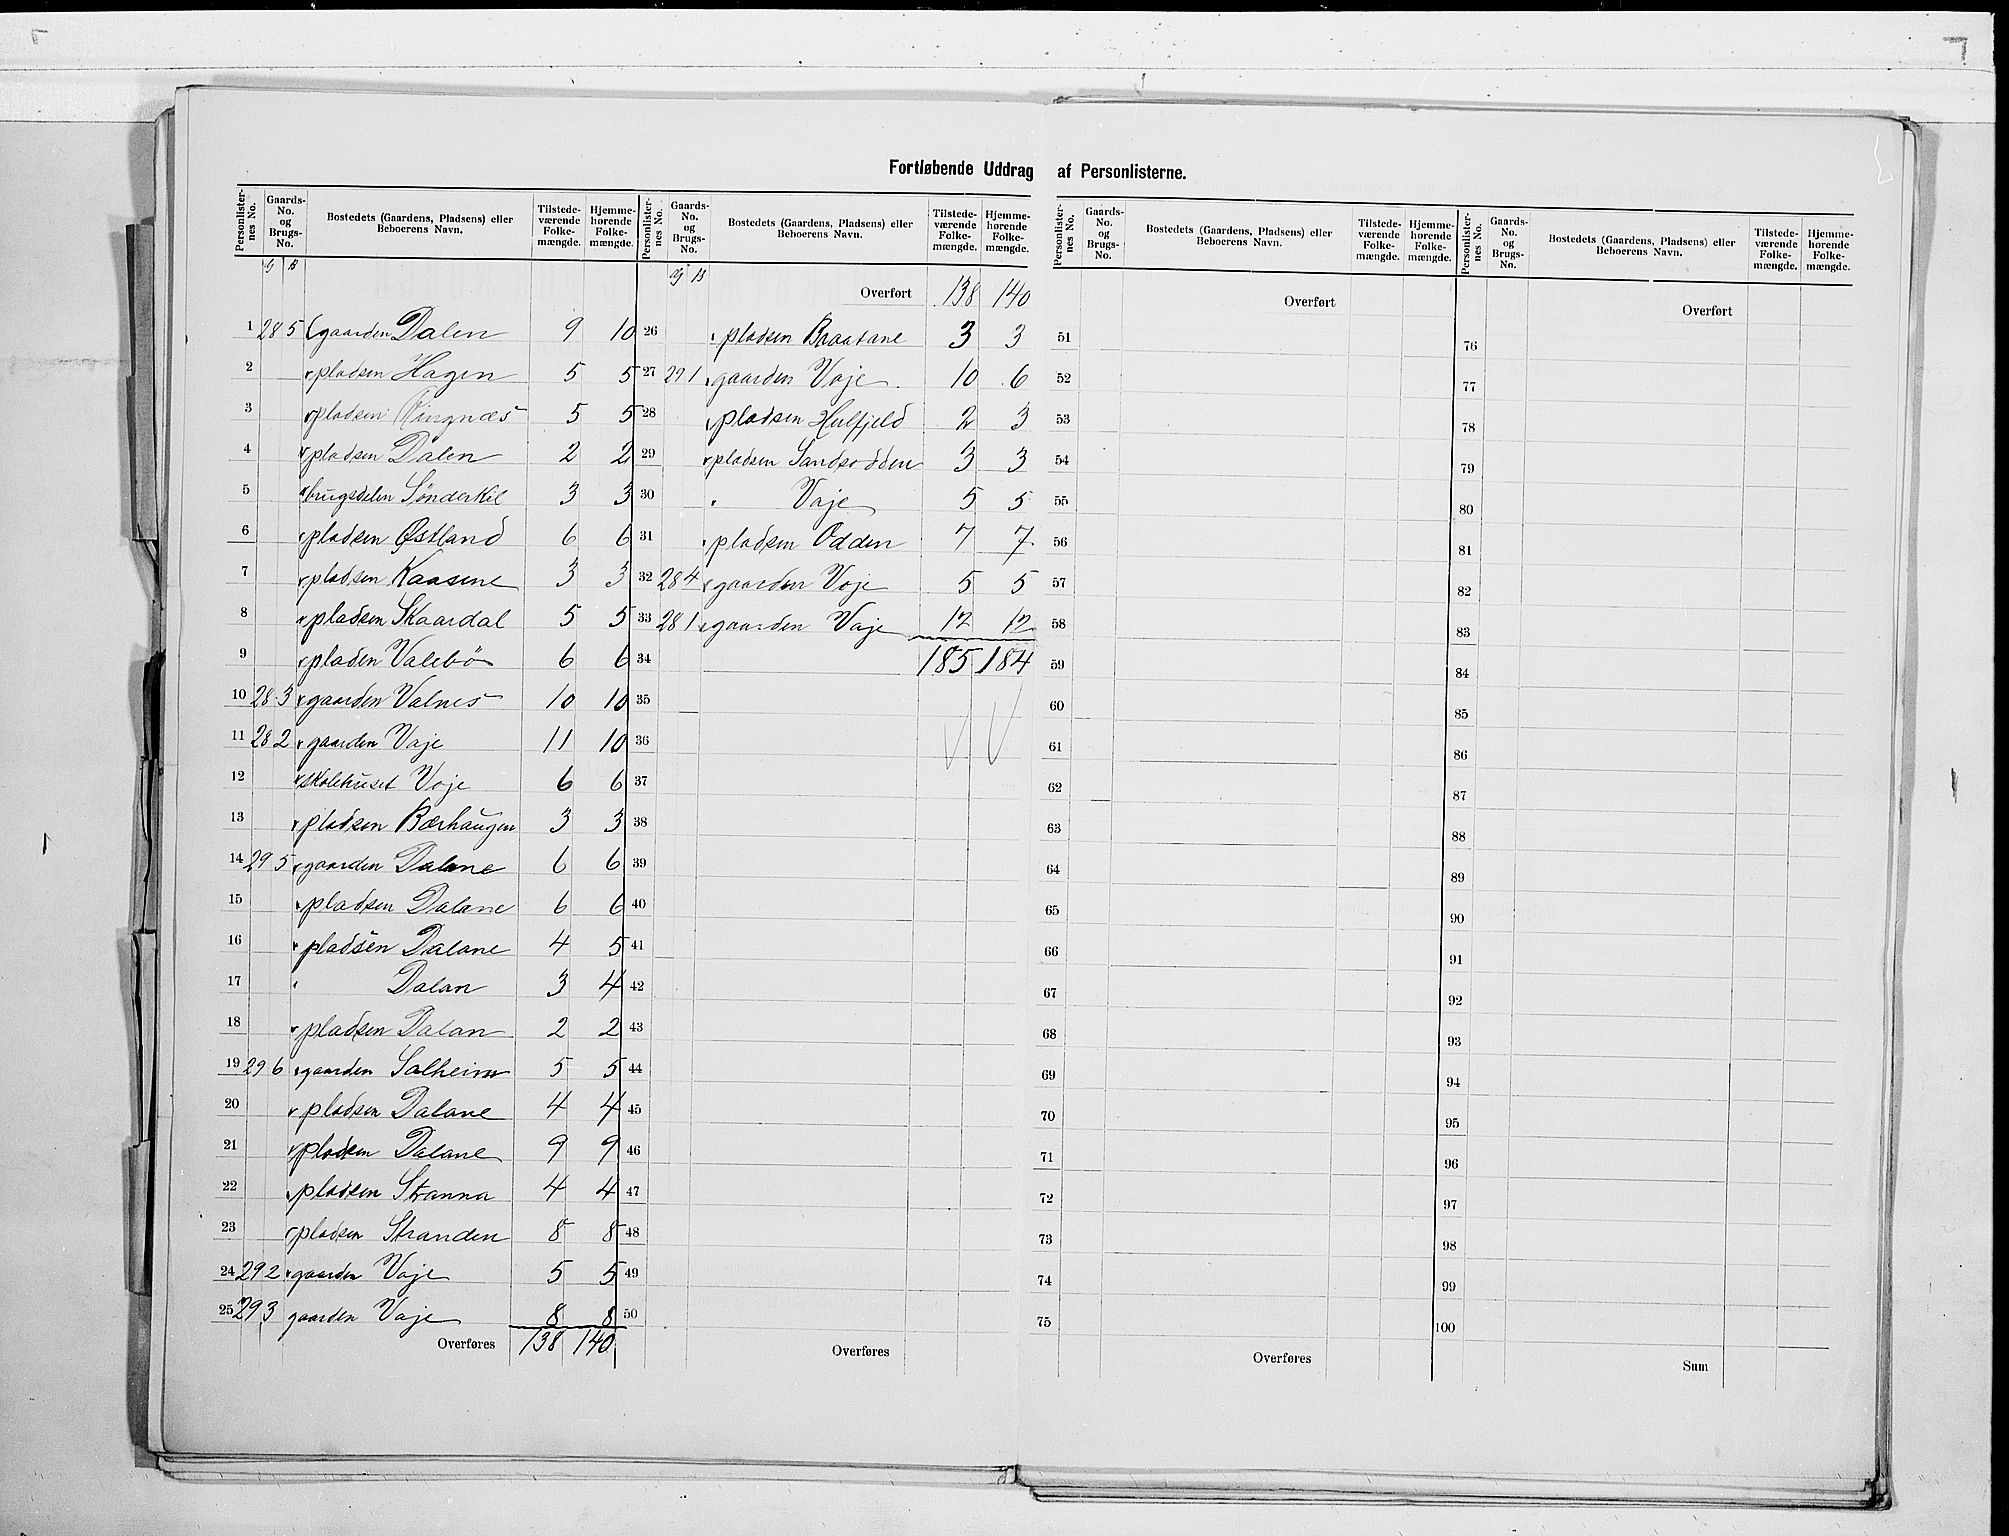 Fortløbende Uddrag af Personlisterne.
Personlisternes No. Gaards-No. og Brugs-No. Bostedets (Gaardens, Pladsens) eller Beboerens Navn. Tilstedeværende Folkemængde. Hjemmehørende Folkemængde.
G B
1 28 5 gaarden Dalen 9 10
2 pladsen Hagen 5 5
3 pladsen Ringnæs 5 5
4 pladsen Dalen 2 2
5 brugsdelen Sönderkil 3 3
6 pladsen Østland 6 6
7 pladsen Kaasene 3 3
8 pladsen Skaardal 5 5
9 pladen Valebö 6 6
10 28 3 gaarden Valnes 10 10
11 28 2 gaarden Vaje 11 10
12 skolehuset Voje 6 6
13 pladsen Bærhaugen 3 3
14 29 5 gaarden Dalane 6 6
15 pladsen Dalane 6 6
16 pladsen Dalane 4 5
17 " Dalan 3 4
18 pladsen Dalan 2 2
19 29 6 gaarden Solheim 5 5
20 pladsen Dalane 4 4
21 pladsen Dalane 9 9
22 pladsen Stranna 4 4
23 pladsen Stranden 8 8
24 29 2 gaarden Vaje 5 5
25 29 3 gaarden Vaje 8 8
Overføres 138 140
Personlisternes No. Gaards-No. og Brugs-No. Bostedets (Gaardens, Pladsens) eller Beboerens Navn. Tilstedeværende Folkemængde. Hjemmehørende Folkemængde.
G B
Overført 138 140
26 pladsen Braatane 3 3
27 29 1 gaarden Vaje 10 6
28 pladsen Hulfjeld 2 3
29 pladsen Sandsodden 3 3
30 " Vaje 5 5
31 pladsen Odden 7 7
32 28 4 gaarden Voje 5 5
33 28 1 gaarden Vaje 12 12
34 185 184
35
36
37
38
39
40
41
42
43
44
45
46
47
48
49
50
Overføres
Personlisternes No. Gaards-No. og Brugs-No. Bostedets (Gaardens, Pladsens) eller Beboerens Navn. Tilstedeværende Folkemængde. Hjemmehørende Folkemængde.
Overført
51
52
53
54
55
56
57
58
59
60
61
62
63
64
65
66
67
68
69
70
71
72
73
74
75
Overføres
Personlisternes No. Gaards-No. og Brugs-No. Bostedets (Gaardens, Pladsens) eller Beboerens Navn. Tilstedeværende Folkemængde. Hjemmehørende Folkemængde.
Overført
76
77
78
79
80
81
82
83
84
85
86
87
88
89
90
91
92
93
94
95
96
97
98
99
100
Sum